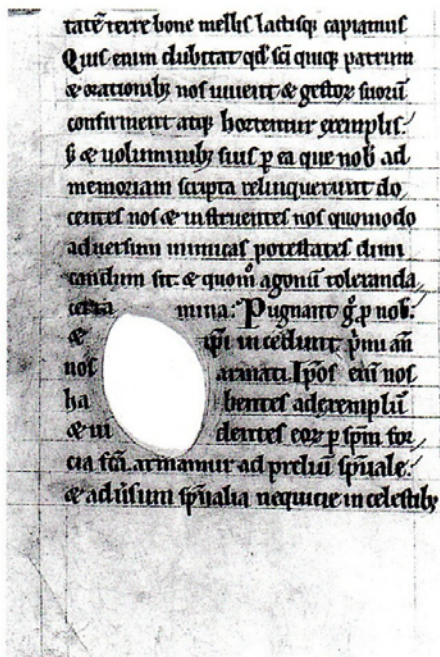 tatē terre bone mellis lactisq; capiamus
Quis enim dubitat qd sc̄i quiq; patrum
& orationib; nos iuuent & gestoꝝ suorū
confirment atq; hortentur exemplis.
s; & uoluminib; suis p ea que nob ad
memoriam scripta relinquerunt do
centes nos & instruentes nos quomodo
aduersum inimicas potestates dimi
candum sit. & quom̊ agonū toleranda
certa mina. Pugnant g̊ p nob.
& ip̄i incedunt p̍mi an̄
nos armati. Ip̄os eni nos
ha bentes ad exemplū
& ui dentes eoꝝ p sp̄m for
cia fc̄a. armamur ad preliū sp̄uale.
& aduersum sp̄ualia nequicie in celestib;